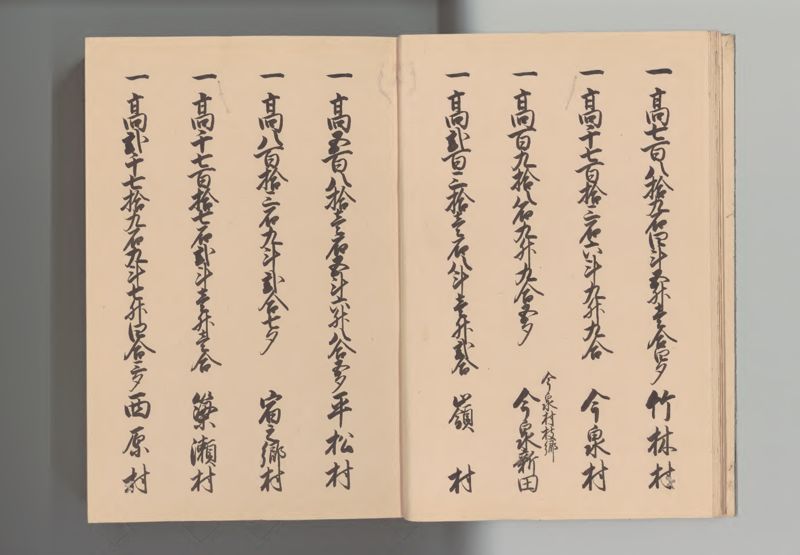 一 高七百八拾五石四斗五升壱合四夕 竹林村
一 高千七百拾三石六斗九升九合 今泉村
今泉村枝郷
一 高百九拾八石九升九合五夕 今泉新田
一 高弐百三拾壱石八斗壱升弐合 嶺村
一 高五百八拾壱石五斗六升八合五夕 平松村
一 高八百拾三石九斗弐合七夕 宿之郷村
一 高千七百拾七石弐斗壱升壱合 簗瀬村
一 高弐千七拾九石九斗七升四合三夕 西原村